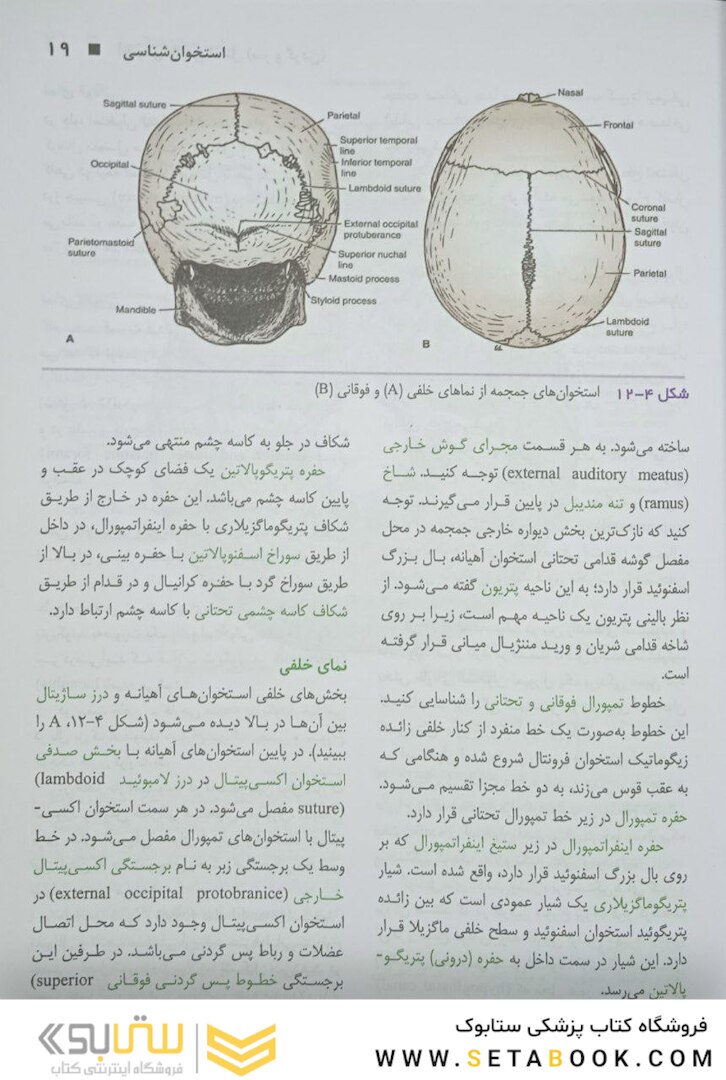 استخوان‌شناسی ■ ۱۹
Sagittal suture
Parietal
Superior temporal
line
Inferior temporal
line
Occipital
Lambdoid suture
External occipital
protuberance
Parietomastoid
suture
Superior nuchal
line
Mastoid process
Styloid process
Mandible
A
Nasal
Frontal
Coronal
suture
Sagittal
suture
Parietal
Lambdoid
suture
B
شکل ۴–۱۲ استخوان‌های جمجمه از نماهای خلفی (A) و فوقانی (B)
ساخته می‌شود. به هر قسمت مجرای گوش خارجی
(external auditory meatus) توجه کنید. شاخ
(ramus) و تنه مندیبل در پایین قرار می‌گیرند. توجه
کنید که نازک‌ترین بخش دیواره خارجی جمجمه در محل
مفصل گوشه قدامی تحتانی استخوان آهیانه، بال بزرگ
اسفنوئید قرار دارد؛ به این ناحیه پتریون گفته می‌شود. از
نظر بالینی پتریون یک ناحیه مهم است، زیرا بر روی
شاخه قدامی شریان و ورید مننژیال میانی قرار گرفته
است.
خطوط تمپورال فوقانی و تحتانی را شناسایی کنید.
این خطوط به‌صورت یک خط منفرد از کنار خلفی زائده
زیگوماتیک استخوان فرونتال شروع شده و هنگامی که
به عقب قوس می‌زند، به دو خط مجزا تقسیم می‌شود.
حفره تمپورال در زیر خط تمپورال تحتانی قرار دارد.
حفره اینفراتمپورال در زیر ستیغ اینفراتمپورال که بر
روی بال بزرگ اسفنوئید قرار دارد، واقع شده است. شیار
پتریگوماگزیلاری یک شیار عمودی است که بین زائده
پتریگوئید استخوان اسفنوئید و سطح خلفی ماگزیلا قرار
دارد. این شیار در سمت داخل به حفره (درونی) پتریگو-
پالاتین می‌رسد.
شکاف در جلو به کاسه چشم منتهی می‌شود.
حفره پتریگوپالاتین یک فضای کوچک در عقب و
پایین کاسه چشم می‌باشد. این حفره در خارج از طریق
شکاف پتریگوماگزیلاری با حفره اینفراتمپورال، در داخل
از طریق سوراخ اسفنوپالاتین با حفره بینی، در بالا از
طریق سوراخ گرد با حفره کرانیال و در قدام از طریق
شکاف کاسه چشمی تحتانی با کاسه چشم ارتباط دارد.
نمای خلفی
بخش‌های خلفی استخوان‌های آهیانه و درز ساژیتال
بین آن‌ها در بالا دیده می‌شود (شکل ۴–۱۲، A را
ببینید). در پایین استخوان‌های آهیانه با بخش صدفی
استخوان اکسی‌پیتال در درز لامبوئید (lambdoid
suture) مفصل می‌شود. در هر سمت استخوان اکسی-
پیتال با استخوان‌های تمپورال مفصل می‌شود. در خط
وسط یک برجستگی زبر به نام برجستگی اکسی‌پیتال
خارجی (external occipital protobranice) در
استخوان اکسی‌پیتال وجود دارد که محل اتصال
عضلات و رباط پس گردنی می‌باشد. در طرفین این
برجستگی خطوط پس گردنی فوقانی (superior
فروشگاه کتاب پزشکی ستابوک
WWW.SETABOOK.COM
ستابوک
فروشگاه اینترنتی کتاب